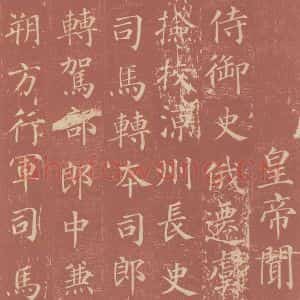 皇帝聞
侍御史俄遷虞
校州長史
司馬轉本司郎
轉駕部郎中兼
朔方行軍司馬